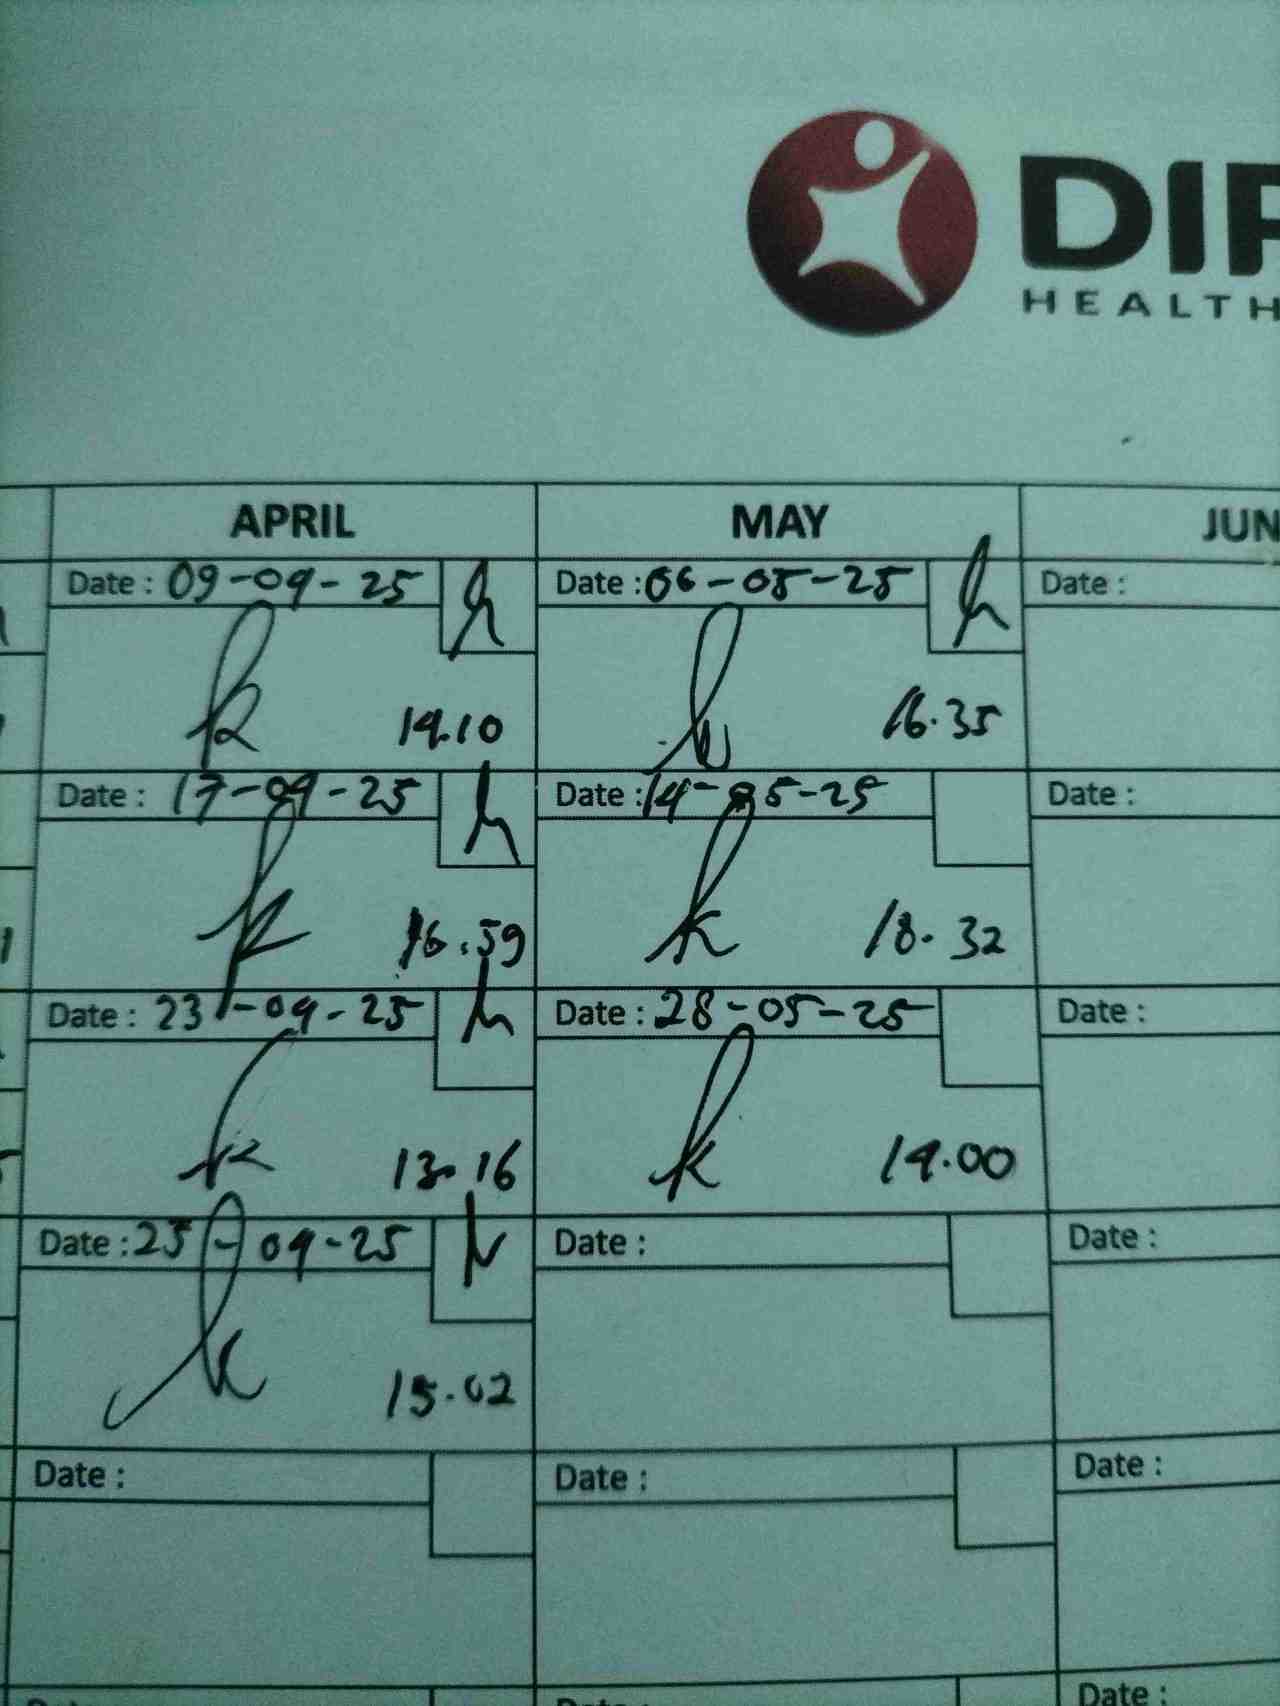 DIP
HEALTH
APRIL MAY JUN
Date : 09-04-25 Date : 06-05-25 Date :
14.10 16.35
Date : 17-04-25 Date : 14-05-25 Date :
16.59 18.32
Date : 23-04-25 Date : 28-05-25 Date :
13.16 14.00
Date : 25-04-25 Date : Date :
15.02
Date : Date : Date :
Date : Date : Date :